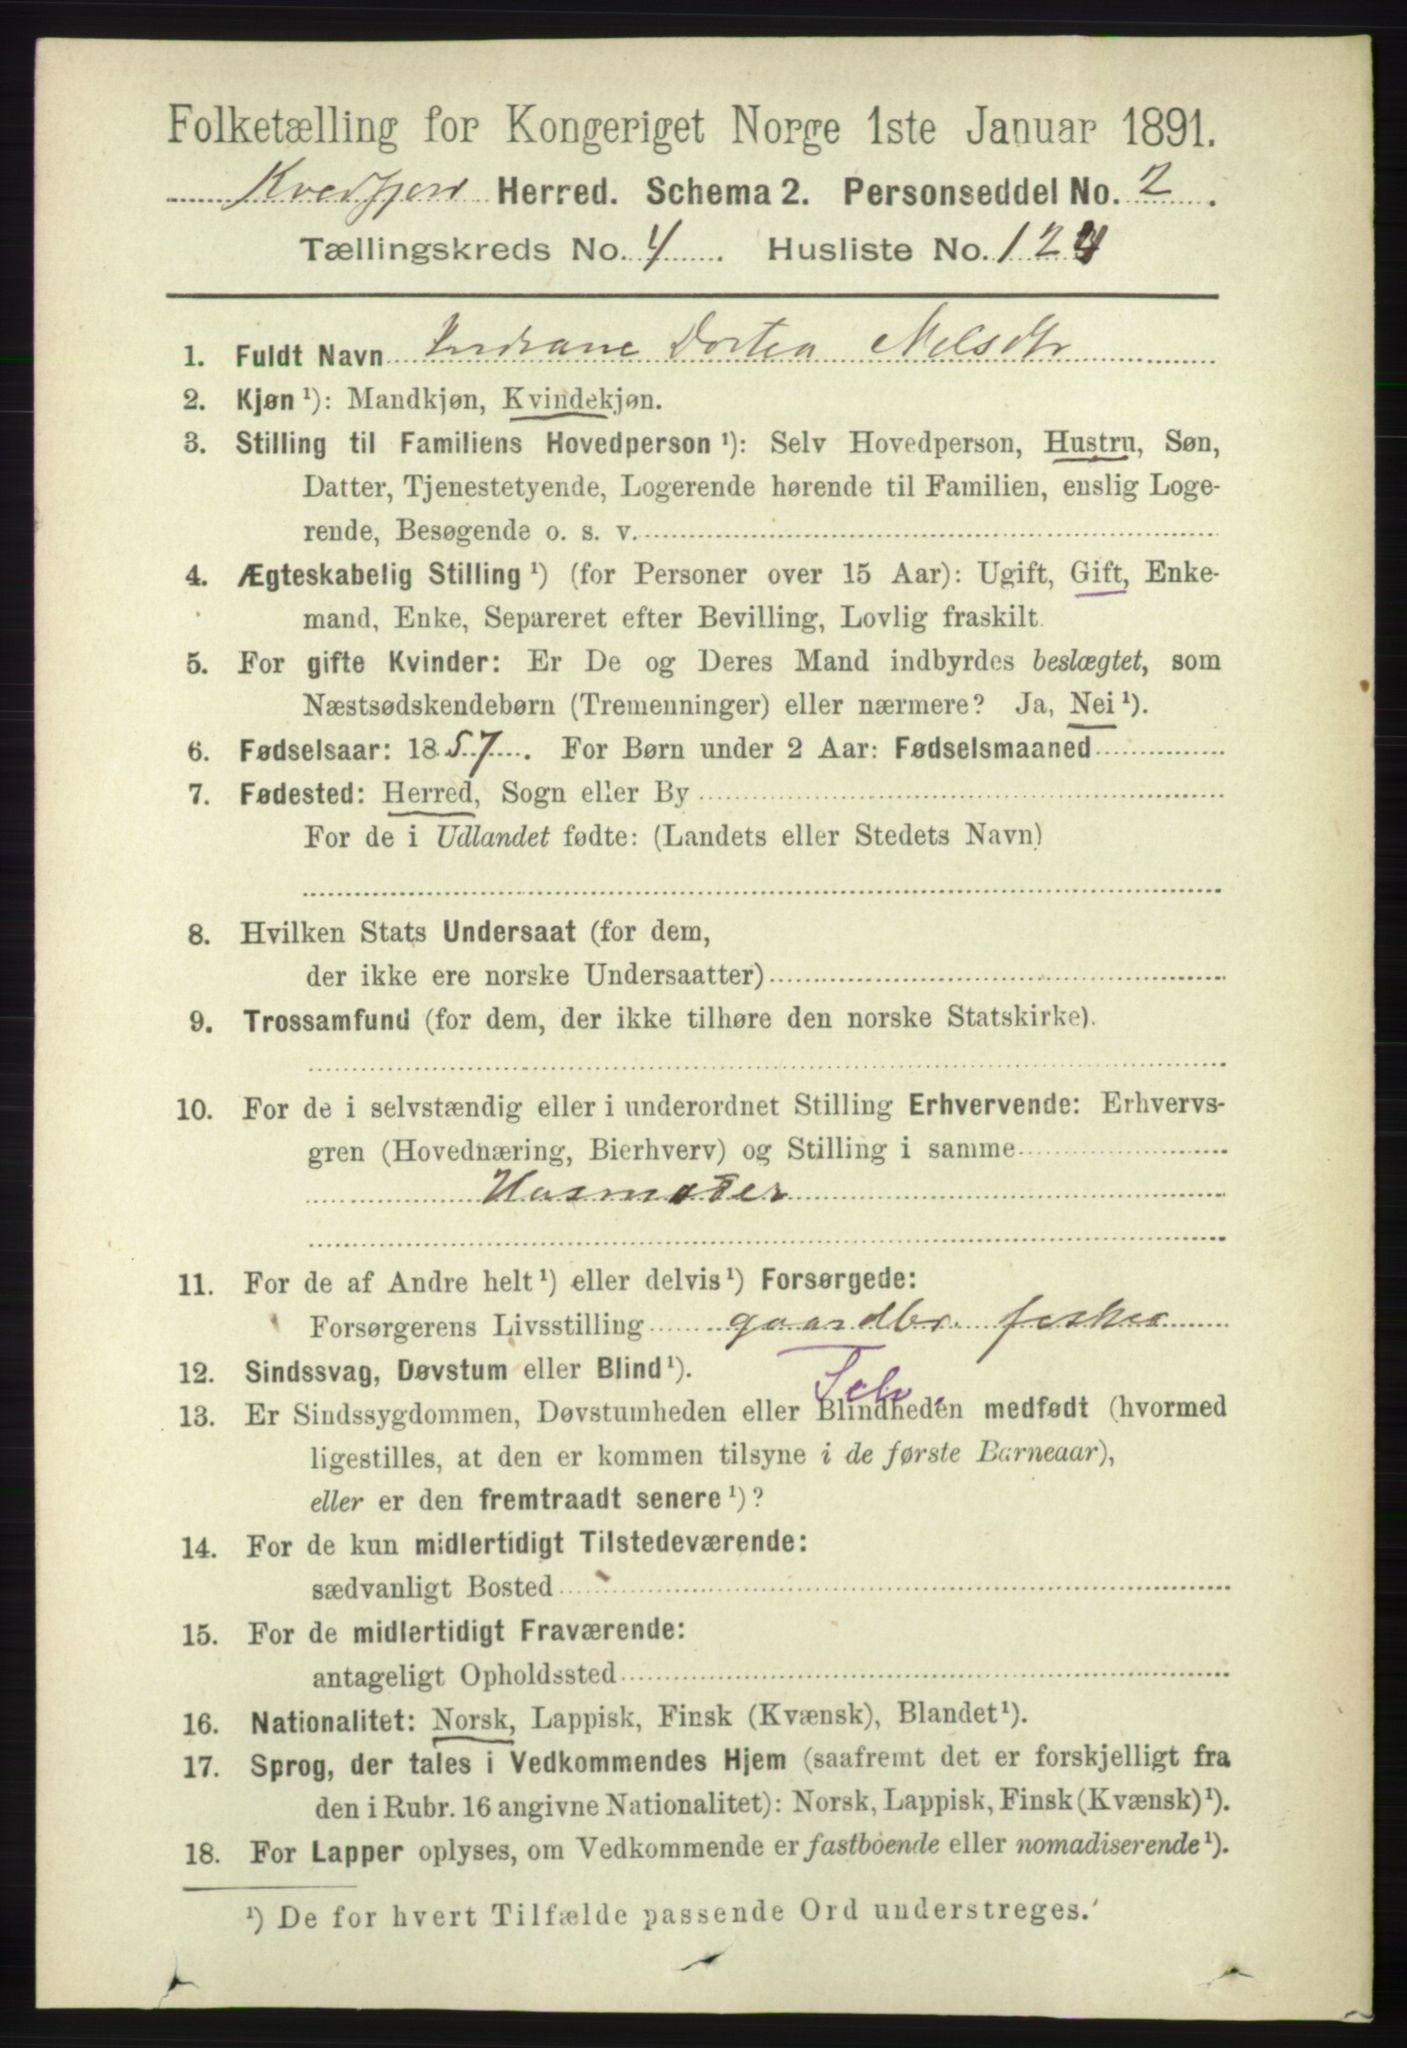 Folketælling for Kongeriget Norge 1ste Januar 1891.
Kvedfjord Herred. Schema 2. Personseddel No. 2.
Tællingskreds No. 4. Husliste No. 124
1. Fuldt Navn Indiane Dortea Nelsdtr
2. Kjøn ¹): Mandkjøn, Kvindekjøn.
3. Stilling til Familiens Hovedperson ¹): Selv Hovedperson, Hustru, Søn,
Datter, Tjenestetyende, Logerende hørende til Familien, enslig Loge-
rende, Besøgende o. s. v.
4. Ægteskabelig Stilling ¹) (for Personer over 15 Aar): Ugift, Gift, Enke-
mand, Enke, Separeret efter Bevilling, Lovlig fraskilt.
5. For gifte Kvinder: Er De og Deres Mand indbyrdes beslægtet, som
Næstsødskendebørn (Tremenninger) eller nærmere? Ja, Nei ¹).
6. Fødselsaar: 1857. For Børn under 2 Aar: Fødselsmaaned
7. Fødested: Herred, Sogn eller By
For de i Udlandet fødte: (Landets eller Stedets Navn)
8. Hvilken Stats Undersaat (for dem,
der ikke ere norske Undersaatter)
9. Trossamfund (for dem, der ikke tilhøre den norske Statskirke).
10. For de i selvstændig eller i underordnet Stilling Erhvervende: Erhvervs-
gren (Hovednæring, Bierhverv) og Stilling i samme
Husmoder
11. For de af Andre helt ¹) eller delvis ¹) Forsørgede:
Forsørgerens Livsstilling gaardbr. fisker
12. Sindssvag, Døvstum eller Blind ¹).
13. Er Sindssygdommen, Døvstumheden eller Blindheden medfødt (hvormed
ligestilles, at den er kommen tilsyne i de første Barneaar),
eller er den fremtraadt senere ¹)?
14. For de kun midlertidigt Tilstedeværende:
sædvanligt Bosted
15. For de midlertidigt Fraværende:
antageligt Opholdssted
16. Nationalitet: Norsk, Lappisk, Finsk (Kvænsk), Blandet ¹).
17. Sprog, der tales i Vedkommendes Hjem (saafremt det er forskjelligt fra
den i Rubr. 16 angivne Nationalitet): Norsk, Lappisk, Finsk (Kvænsk) ¹).
18. For Lapper oplyses, om Vedkommende er fastboende eller nomadiserende ¹).
¹) De for hvert Tilfælde passende Ord understreges.